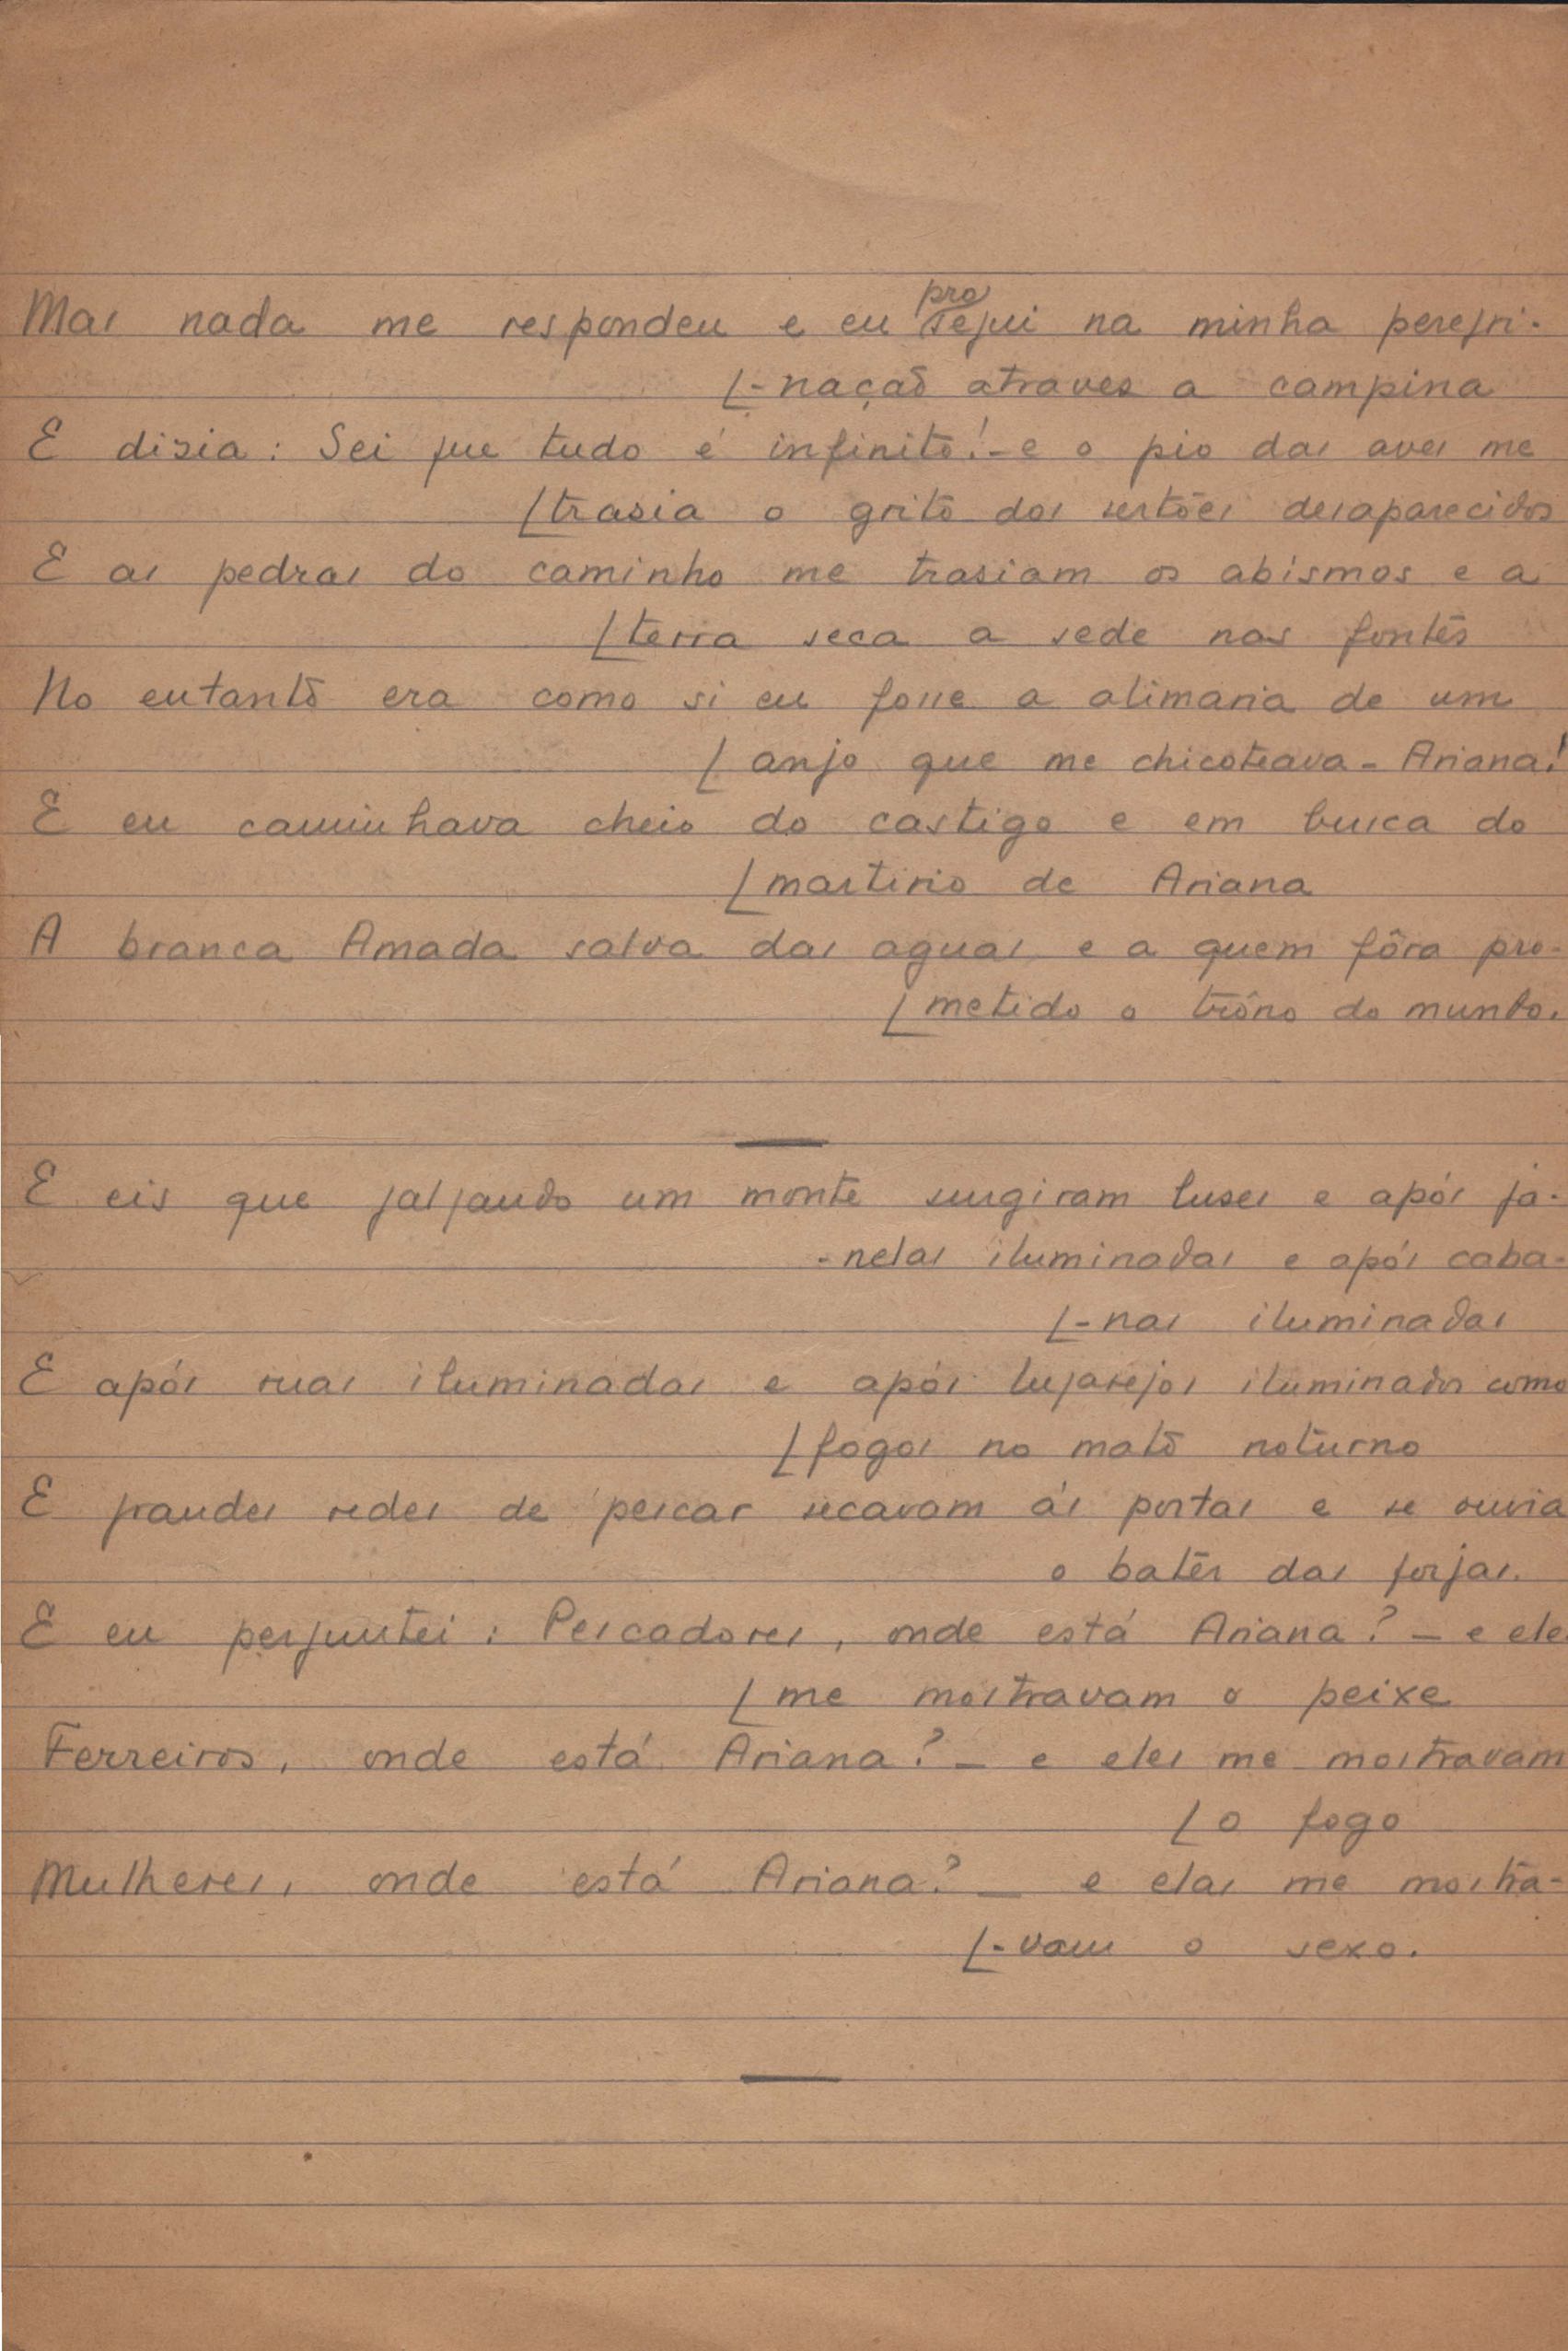 Mas nada me respondeu e eu prosegui na minha peregri-
[-nação atraves a campina
E disia: Sei que tudo é infinito! - e o pio das aves me
[trasia o grito dos sertões desaparecidos
E as pedras do caminho me trasiam os abismos e a
[terra seca a sede nas fontes
No entanto era como si eu fosse a alimaria de um
[anjo que me chicoteava - Ariana!
E eu caminhava cheio do castigo e em busca do
[martirio de Ariana
A branca Amada salva das aguas e a quem fôra pro-
[metido o trôno do mundo.
E eis que galgando um monte surgiram luses e após ja-
-nelas iluminadas e após caba-
[-nas iluminadas
E após ruas iluminadas e após lugarejos iluminados como
[fogos no mato noturno
E grandes redes de pescar secavam ás portas e se ouvia
o bater das forjas.
E eu perguntei: Pescadores, onde está Ariana? - e eles
[me mostravam o peixe
Ferreiros, onde está Ariana? - e eles me mostravam
[o fogo
Mulheres, onde está Ariana? - e elas me mostra-
[-vam o sexo.